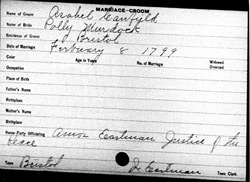 MARRIAGE-GROOM
Name of Groom Asahel Canfield
Name of Bride Polly Murdock
Residence of Groom Bristol
Date of Marriage February 8 1799
Color Age in Years No. of Marriage Widowed Divorced
Occupation
Place of Birth
Father's Name
Birthplace
Mother's Name
Birthplace
Name Party Officiating Amos Eastman Justice of the
Peace
Town Bristol Eastman Town Clerk